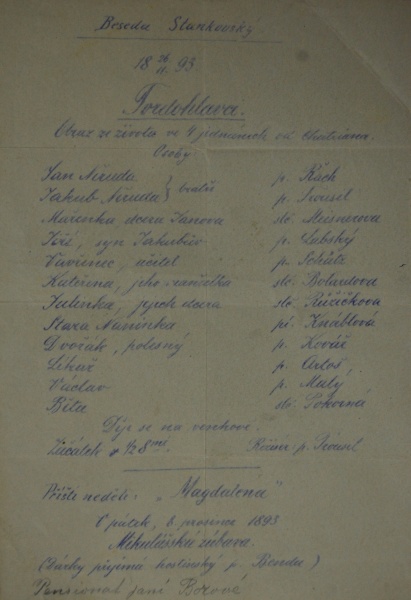 Beseda Stankovský
18 26/11 93
Tvrdohlava.
Obraz ze života ve 4 jednáních od
Osoby
Jan Neruda } bratři p. Řách
Jakub Neruda p. Trousel
Mařenka dcera Janova slč. Meisnerova
Jiří, syn Jakubův p. Lubský
Vavřinec, učitel p. Schülz
Kateřina, jeho manželka slč.
Julinka, jejich dcera slč. Růžičkova
Stará Naninka pí. Knáblová
Dvořák, polesný p. Kovář
Lékař p. Artoš
Václav p. Malý
Běta slč. Pokorná
Děj se na venkově.
Začátek o 1/2 8 mé. Režisér p. Trousl
Příští neděli: „Magdalena"
V pátek, 6. prosince 1893
Mikulášská zábava.
(Dárky přijímá hostinský p. Benda)
Pensionat paní